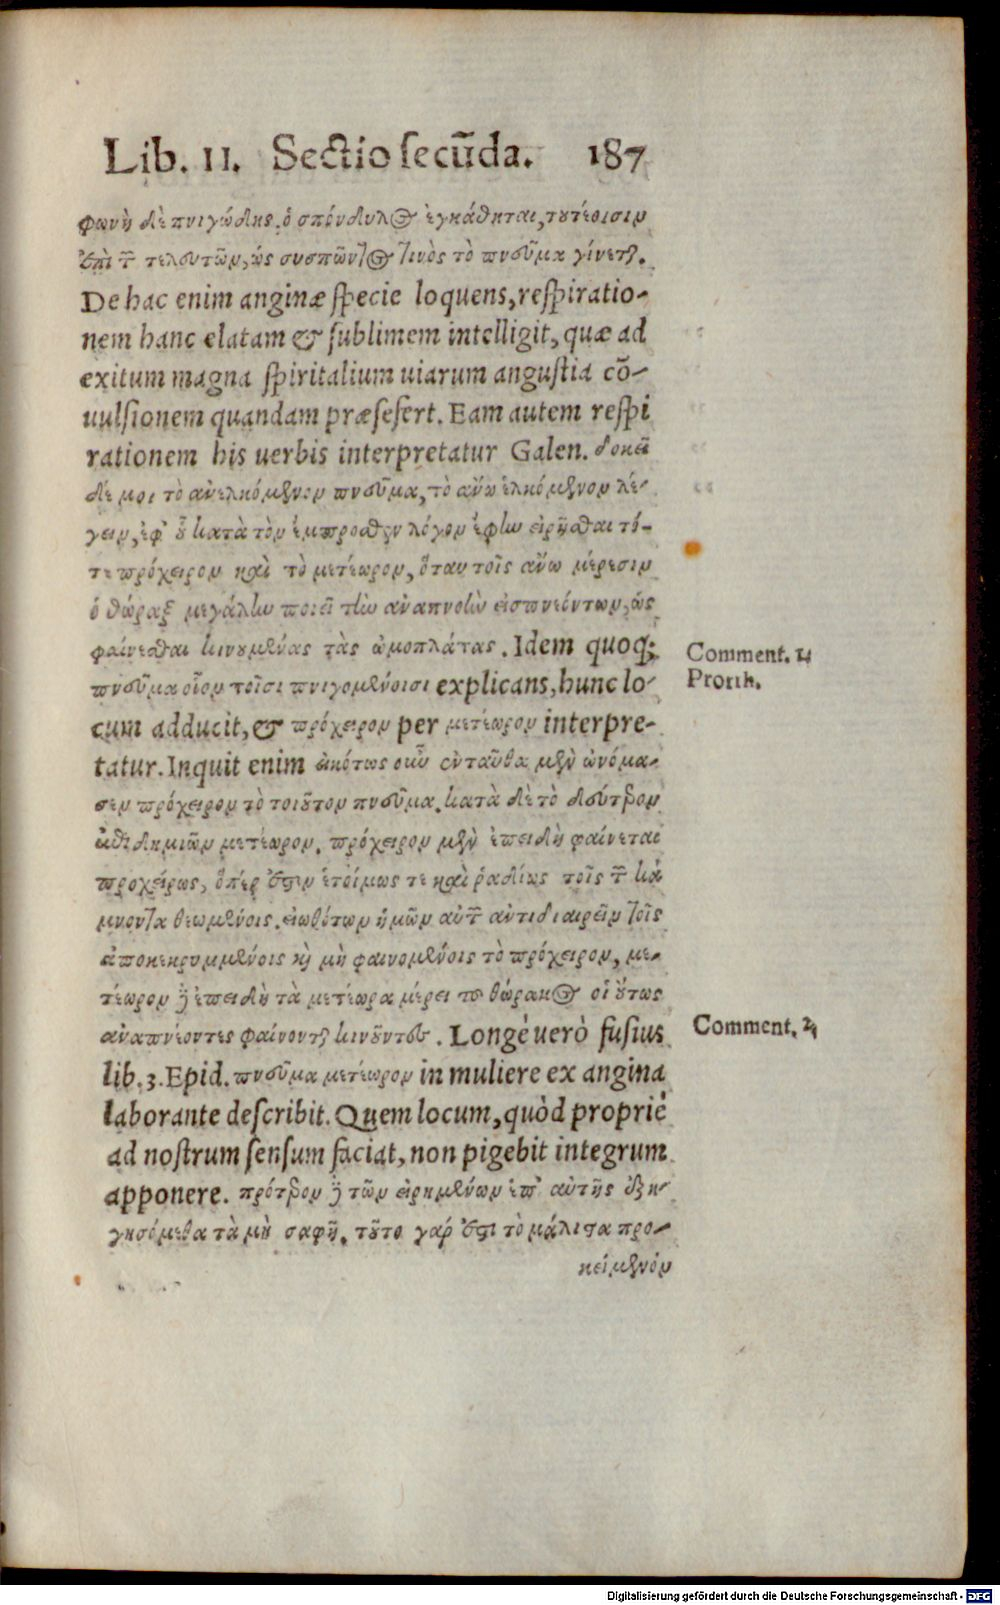 Lib. II. Sectio secūda. 187
φωνὴ δὲ πνιγώδης. ὁ σπόνδυλος ἐγκάθηται, τουτέοισιν
ἐπὶ τῶν τελευτῶν, ὡς συσπῶντος τινὸς τὸ πνεῦμα γίνεται.
De hac enim anginæ specie loquens, respiratio-
nem hanc elatam & sublimem intelligit, quæ ad
exitum magna spiritalium uiarum angustia cō-
uulsionem quandam præsefert. Eam autem respi
rationem his uerbis interpretatur Galen. δοκεῖ
δέ μοι τὸ ἀνελκόμενον πνεῦμα, τὸ ἄνω ἑλκόμενον λέ-
γειν, ἐφ' οὗ κατὰ τὸν ἔμπροσθεν λόγον ἔφην εἰρῆσθαι τό-
τε πρόχειρον καὶ τὸ μετέωρον, ὅταν τοῖς ἄνω μέρεσιν
ὁ θώραξ μεγάλην ποιεῖ τὴν ἀναπνοὴν εἰσπνεόντων, ὡς
φαίνεσθαι κινουμένας τὰς ὠμοπλάτας. Idem quoq;
Comment. 1.
Prorrh.
πνεῦμα οἷον τοῖσι πνιγομένοισι explicans, hunc lo-
cum adducit, & πρόχειρον per μετέωρον interpre-
tatur. Inquit enim εἰκότως οὖν ἐνταῦθα μὲν ὠνόμα-
σεν πρόχειρον τὸ τοιοῦτον πνεῦμα. κατὰ δὲ τὸ δεύτερον
ἐπιδημιῶν μετέωρον. πρόχειρον μὲν ἐπειδὴ φαίνεται
προχείρως, ὅπερ ἐστὶν ἑτοίμως τε καὶ ῥαδίως τοῖς τὸν κά
μνοντα θεωμένοις. εἰωθότων ἡμῶν αὐτὸ ἀντιδιαιρεῖν τοῖς
ἀποκεκρυμμένοις καὶ μὴ φαινομένοις τὸ πρόχειρον, με-
τέωρον δὲ ἐπειδὴ τὰ μετέωρα μέρει τοῦ θώρακος οἱ οὕτως
ἀναπνέοντες φαίνονται κινοῦντες. Longè uerò fusius
Comment. 2.
lib. 3. Epid. πνεῦμα μετέωρον in muliere ex angina
laborante describit. Quem locum, quòd propriè
ad nostrum sensum faciat, non pigebit integrum
apponere. πρότερον δὲ τῶν εἰρημένων ἐπ' αὐτῆς ἐξη-
γησόμεθα τὰ μὴ σαφῆ. τοῦτο γάρ ἐστι τὸ μάλιστα προ-
κείμενον
Digitalisierung gefördert durch die Deutsche Forschungsgemeinschaft - DFG